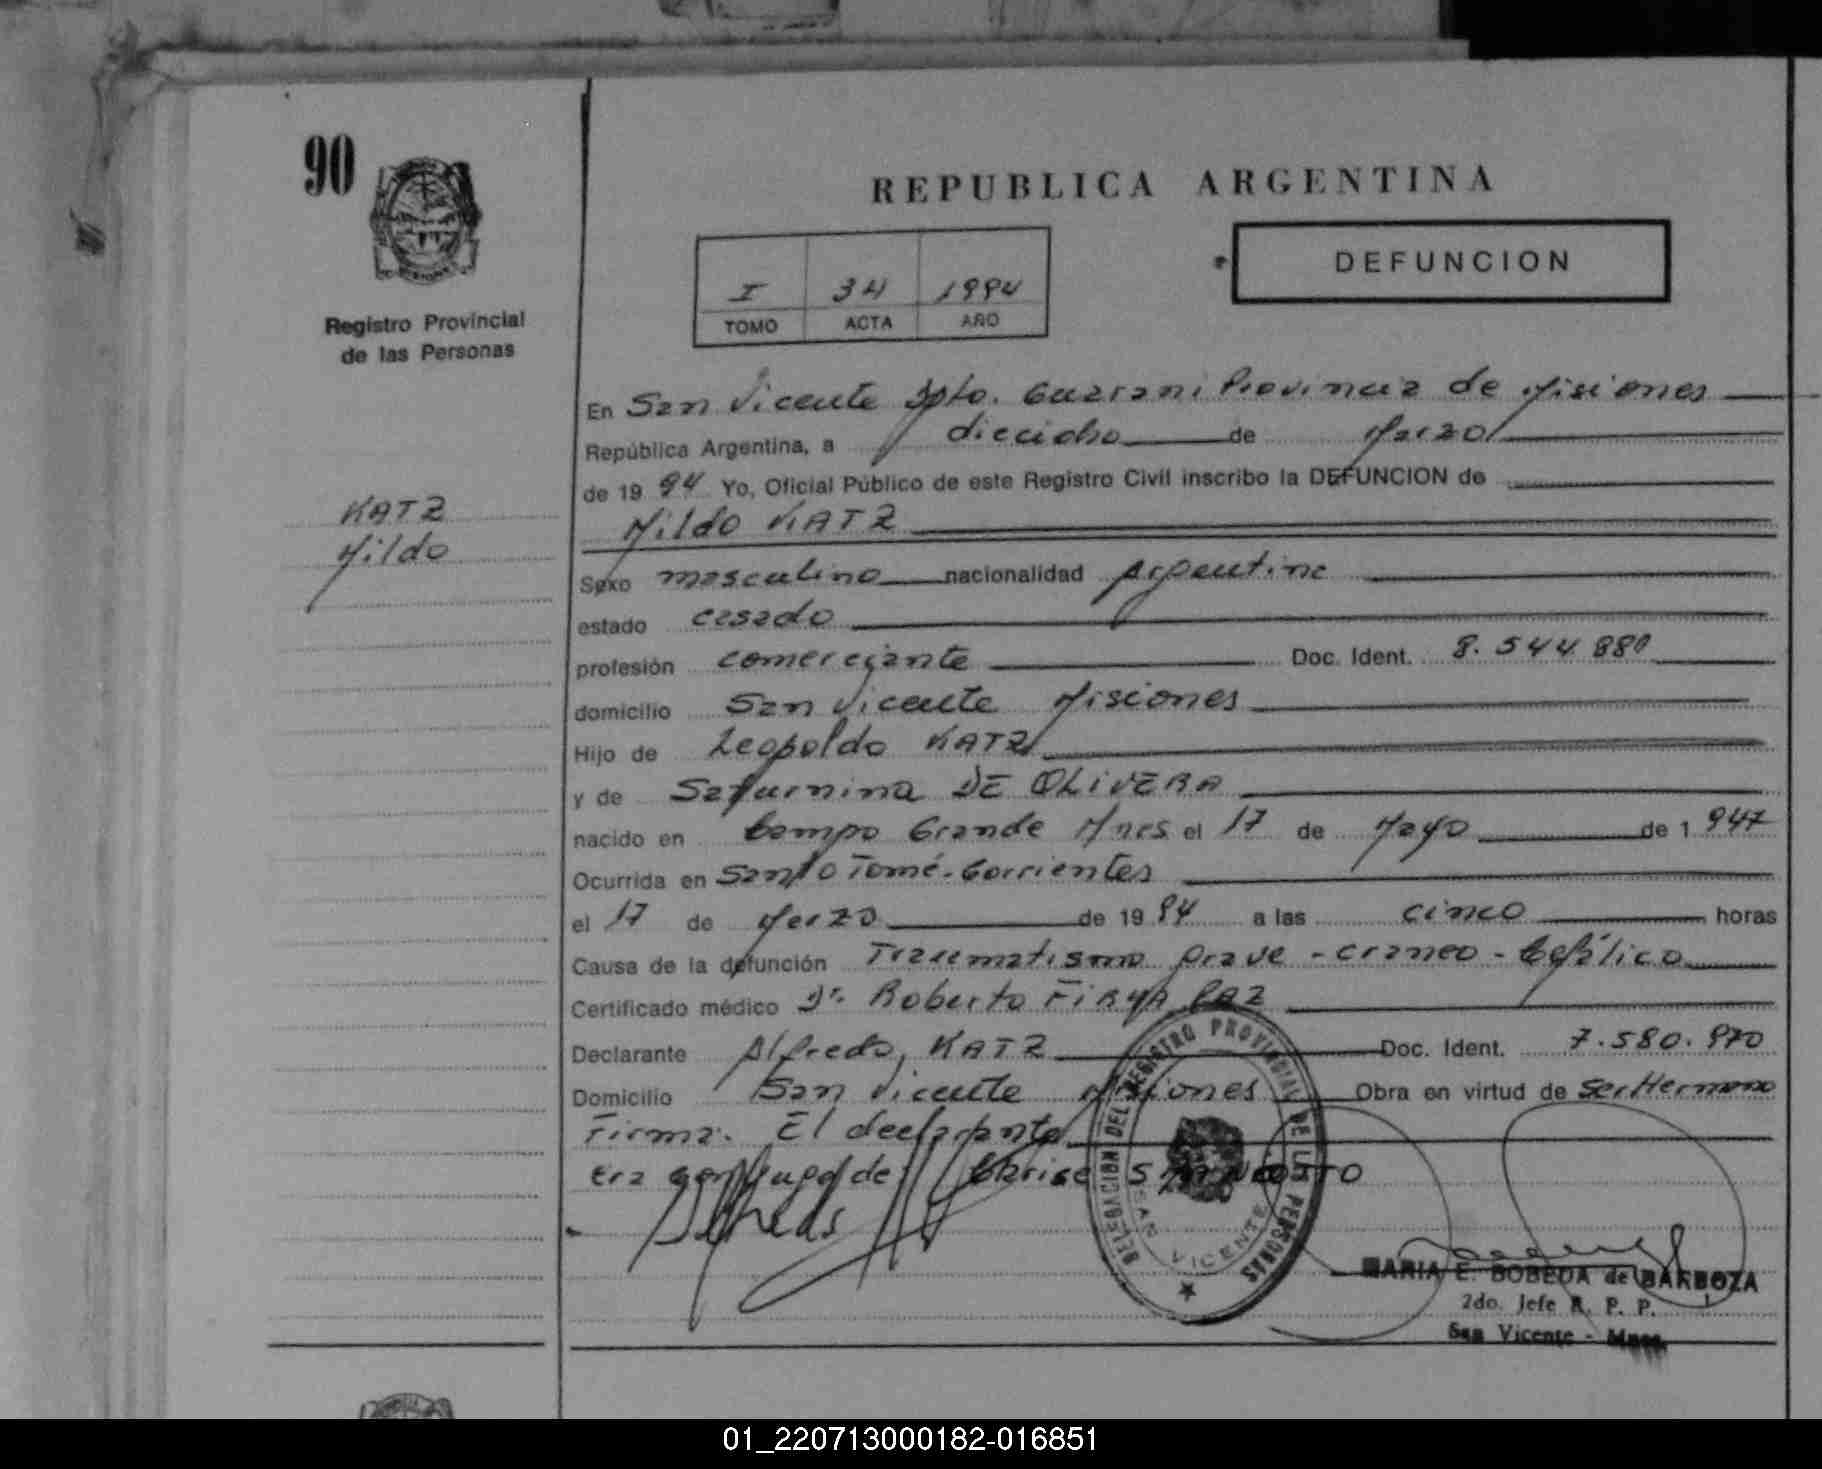 90
REPUBLICA ARGENTINA
DEFUNCION
I 34 1994
TOMO ACTA AÑO
Registro Provincial
de las Personas
KATZ
Mildo
En San Vicente Dpto. Guarani Provincia de Misiones
República Argentina, a dieciocho de Marzo
de 1994 Yo, Oficial Público de este Registro Civil inscribo la DEFUNCION de
Mildo KATZ
Sexo masculino nacionalidad Argentina
estado casado
profesión comerciante Doc. Ident. 8.544.880
domicilio San Vicente Misiones
Hijo de Leopoldo KATZ
y de Saturnina DE OLIVERA
nacido en Campo Grande Mnes el 17 de Mayo de 1947
Ocurrida en Santo Tomé-Corrientes
el 17 de Marzo de 1994 a las cinco horas
Causa de la defunción Traumatismo grave - craneo - Cefálico
Certificado médico Dr. Roberto PAZ
Declarante Alfredo, KATZ Doc. Ident. 7.580.970
Domicilio San Vicente Misiones Obra en virtud de ser Hermano
Firma: El declarante
Era conyuge de:
DELEGACION DEL REGISTRO PROVINCIAL DE LAS PERSONAS
SAN VICENTE
MARIA E. BOBEDA de BARBOZA
2do. Jefe R. P. P.
San Vicente - Mnes.
01_220713000182-016851